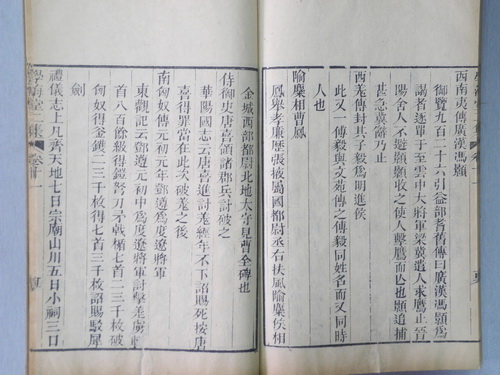 西南夷傳廣漢馮顥
御覽九百二十六引益部耆舊傳曰廣漢馮顥為
謁者逐單于至雲中大將軍梁冀遣人求鷹止晉
陽舍人不避顥顥收之使人擊鷹而亡也顥追捕
甚急冀辭乃止
西羌傳其子毅為明進侯
此又一傅毅與文苑傳之傅毅同姓名而又同時
人也
隃麋相曹鳳
鳳舉孝廉歷張掖屬國都尉丞右扶風隃麋侯相
金城西部都尉北地太守見曹全碑也
侍御史唐喜領諸郡兵討破之
華陽國志云唐喜進討羌經年不下詔賜死按唐
喜得罪當在此次破羌之後
南匈奴傳元初元年鄧遵為度遼將軍
東觀記云鄧遵元初中為度遼將軍討擊羌虜斬
首八百餘級得鎧弩刀矛戟楯匕首二三千枚破
匈奴得釜鑊二三千枚得匕首三千枚詔賜駮犀
劍
禮儀志上凡齊天地七日宗廟山川五日小祠三日
學海堂二集
卷十一